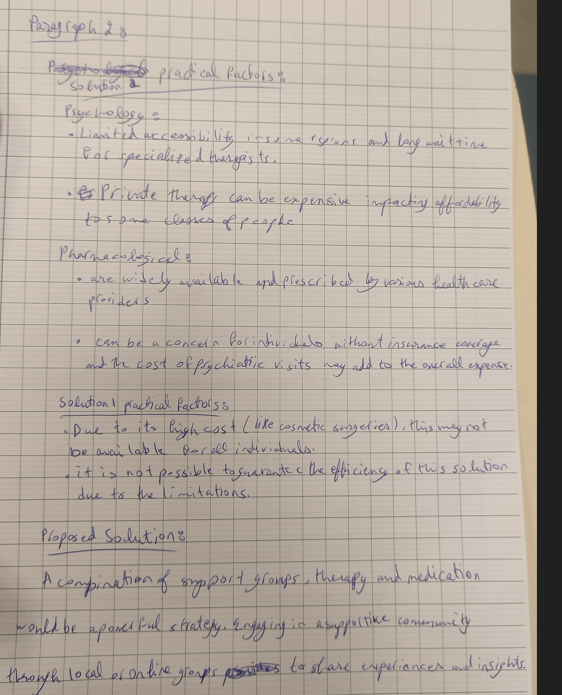 Paragraph 2:
practical factors:
Solution 2
Psychology:
• Limited accessibility in some regions and long wait time
for specialized therapists.
• Private therapy can be expensive impacting affordability
to some classes of people
Pharmacological:
• are widely available and prescribed by various health care
providers
• can be a concern for individuals without insurance coverage
and the cost of psychiatric visits may add to the overall expense.
Solution 1 practical factors:
• Due to its high cost (like cosmetic surgeries), this may not
be available for all individuals.
• it is not possible to guarantee the efficiency of this solution
due to the limitations.
Proposed Solution:
A combination of support groups, therapy and medication
would be a powerful strategy. Engaging in a supportive community
through local or online groups to share experiances and insights.